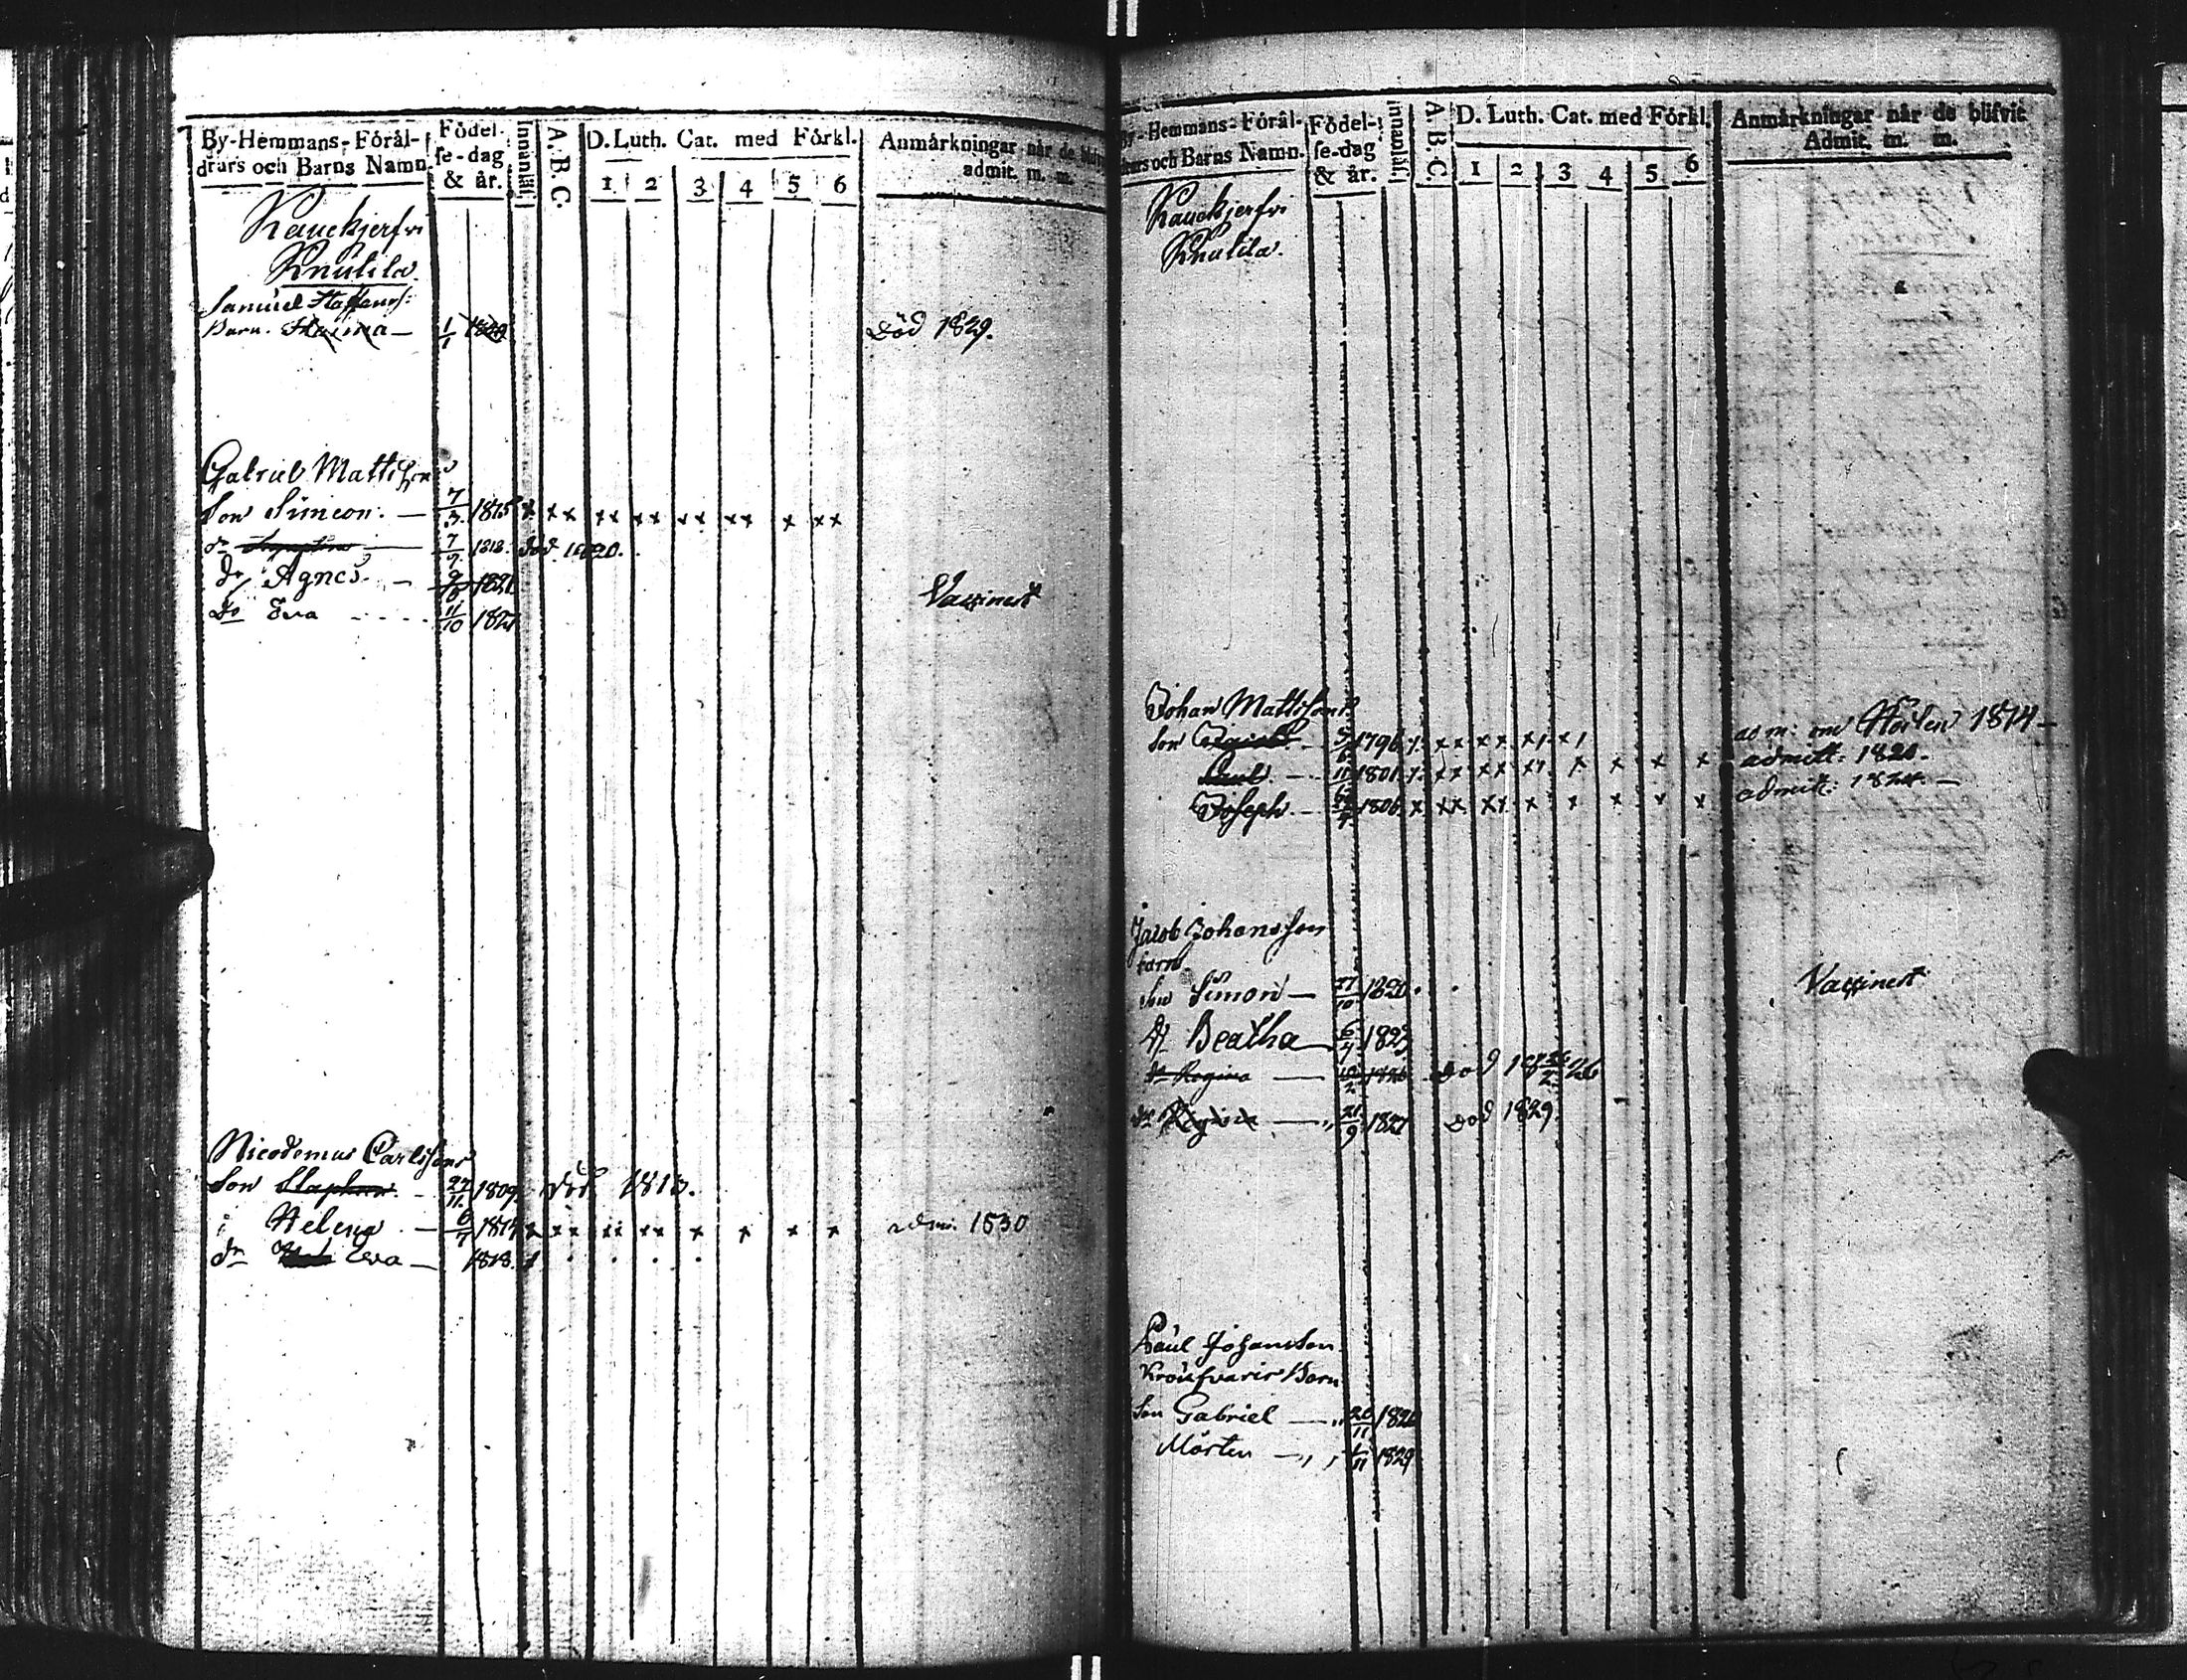 By-Hemmans-Föräl-
drars och Barns Namn.
Födel-
se-dag
& år.
Innanläs.
A. B. C.
D. Luth. Cat. med Förkl.
1 2 3 4 5 6
Anmärkningar når de blifvit
admit. m. m.
Rauckjerfvi
Knutila
Samuel Staffanss:
Barn. 1/1
död 1829.
Gabriel Mattsson
Son Simeon. — 7/3. 1815 x xx xx xx xx xx x xx
dr 7/9. 1818. död 1820.
dr Agnes — 9/10 1821
Vaxinert
dr Eva - - - - 11/10 1827
Nicodemus Carlssons
Son Staphan — 27/11. 1809. död 1813.
Helena — 6/7 1814 x xx xx xx x x x x adm. 1830
dr Eva — 1818.
By-Hemmans-Föräl-
drars och Barns Namn.
Födel-
se-dag
& år.
Innanläs.
A. B. C.
D. Luth. Cat. med Förkl.
1 2 3 4 5 6
Anmärkningar når de blifvit
Admit. m. m.
Rauckjerfvi
Knutila.
Johan Mattssons
Son 1796
adm: om Hösten 1814 —
Paul. — 11 1801 admitt: 1820.
Joseph. — 1806 x xx xx x x x x x admitt: 1824. —
Jacob Johansson
barn
Son Simon — 27/10 1820.
Vaxinert
dr Beatha 6/4 1823
dr Regina — 1826 död
dr Regina — 21/9 1827 död 1829.
Paul Johansson
Barn
Son Gabriel — 26/11 182
Mårten — 1/11 1829